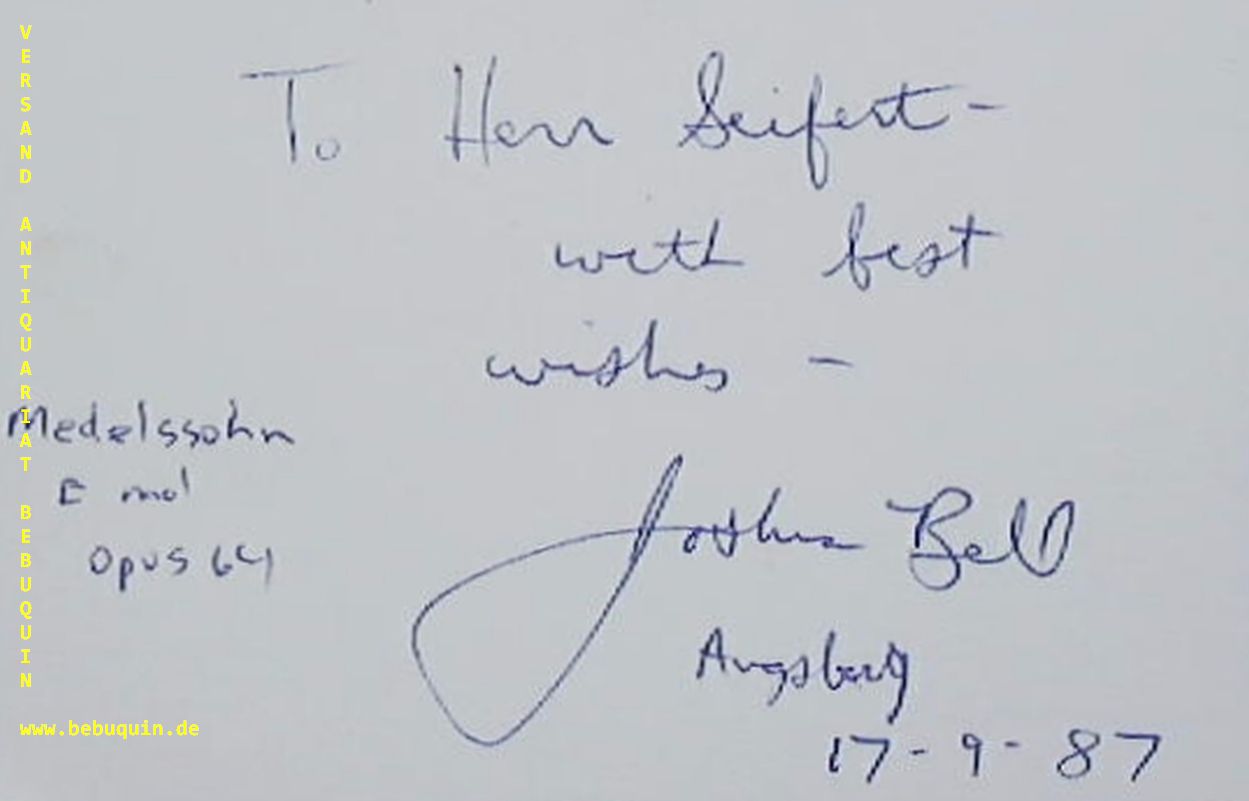 To Herr Seifert -
with best
wishes -
Medelssohn
E mol
Opus 64
Joshua Bell
Augsburg
17 - 9 - 87
VERSAND ANTIQUARIAT BEBUQUIN
www.bebuquin.de